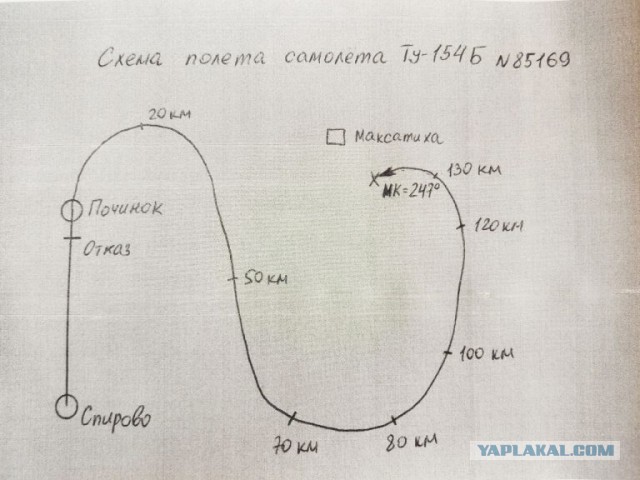 Схема полета самолета Ту-154Б N85169
20 км
Максатиха
130 км
МК=247°
Починок
120 км
Отказ
50 км
100 км
Спирово
70 км
80 км
YAPLAKAL.COM